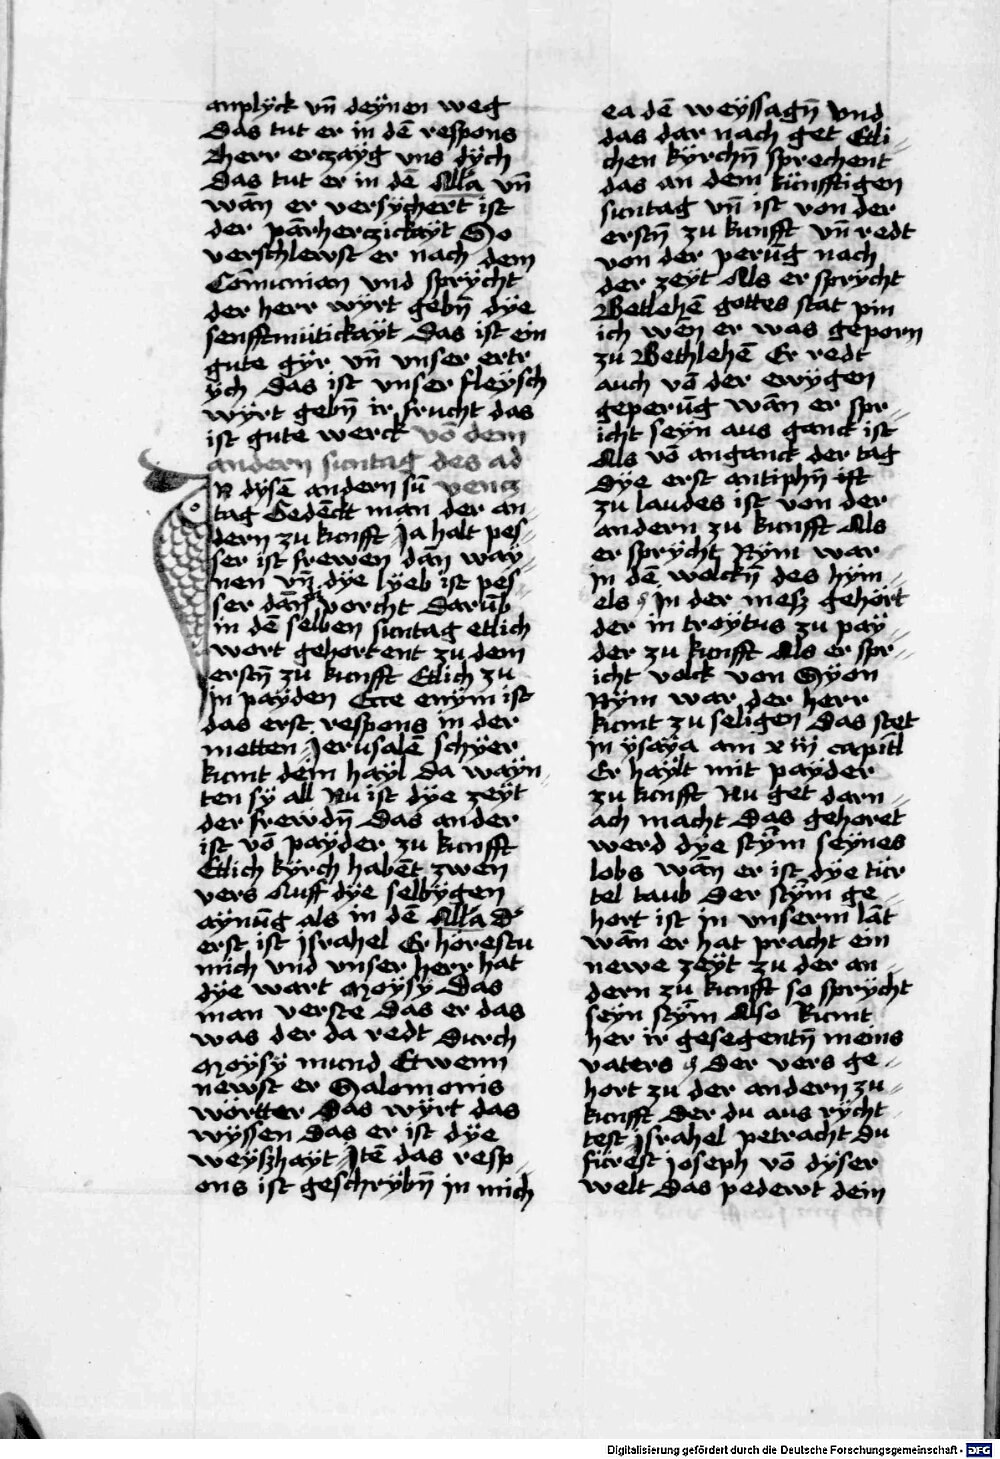 anplÿck vn̄ deÿnen weg
Das tut er in dē respons
Herr erczaÿg vns dÿch
Das tut er in dē Alla vn̄
wān er versÿchert ist
der pārherczickaÿt So
verschlewst er nach dem
Cōmunian vnd sprÿcht
der herr wÿrt gebn̄ dÿe
senfftmütickaÿt Das ist ein
gute gÿr vn̄ vnser ertr
ÿch Das ist vnser fleÿsch
wÿrt gebn̄ ir frucht das
ist gute werck vō dem
andern suntag des ad
N dÿsē andern sū vencz
tag Gedēckt man der an-
dern zu kunfft Ja halt pes-
ser ist frewen dān waÿ-
nen vn̄ dÿe lÿeb ist pes-
ser dān vorcht Darūb
in dē selben suntag etlich
wort gehortent zu dem
erstn̄ zu kunfft Etlich zu
In paÿden Ecce enÿm ist
das erst respons in der
metten Jerusalē schÿer
kumt deim haÿl Da waÿn-
ten sÿ all Nu ist dÿe zeÿt
der frewdn̄ Das ander
ist vō paÿder zu kunfft
Etlich kÿrch habēt zwen
vers Auff dÿe selbÿgen
aÿnūg als in dē Alla D'
erst ist israhel Er horestu
mich vnd vnser herr hat
dÿe wart Moÿsÿ Das
man verste Das er das
was der da redt Durch
Moÿsÿ mund Etwenn
newst er Salomonis
wörtter Das wÿrt das
wÿssen Das er ist dÿe
weÿszhaÿt Itē das resp-
ons ist geschrÿbn̄ in mich
ea dē weÿssagn̄ vnd
das dar nach get Etli-
chen kÿrchn̄ sprechent
das an dem künfftigen
suntag vn̄ ist von der
erstn̄ zu kunfft vn̄ redt
von der perūg nach
der zeÿt Als er sprÿcht
Betlehē gottes stat pin
ich wen er was geporn
zu Bethlehē Er redt
auch vō der ewÿgen
geperūg wān er spr-
icht seÿn aus ganck ist
Als vō anganck der tag
Dÿe erst antiphn̄ ist
zu laudes ist von der
andern zu kunfft Als
er sprÿcht Nÿm war
in dē wolckn̄ des hÿm-
els In der mesz gehört
der in troÿtus zu paÿ-
der zu kunfft Als er spr-
icht volck von Sÿon
Nÿm war der herr
kumt zu seligen Das stet
in ÿsaÿa am x iij capitl
Er haÿlt mit paÿder
zu kunfft Nu get darn-
ach macht Das gehoret
werd dÿe stÿm seÿnes
lobs wān er ist dÿe tür
tel taub Der stÿm ge-
hort ist in vnserm lāt
wān er hat pracht ein
newe zeÿt zu der an-
dern zu kunfft so sprÿcht
seÿn stÿm Also Kumt
her ir gesegentn̄ meins
vaters Der vers ge-
hort zu der andern zu-
kunfft Der du aus rÿcht
test Israhel petracht du
fürest ioseph vō dÿser
welt Das pedewt dein
Digitalisierung gefördert durch die Deutsche Forschungsgemeinschaft - DFG